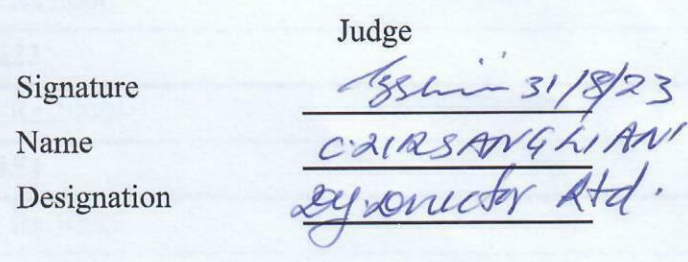 Judge
Signature 31/8/23
Name C. ZIRSANGLIANI
Designation Dy. Director Rtd.